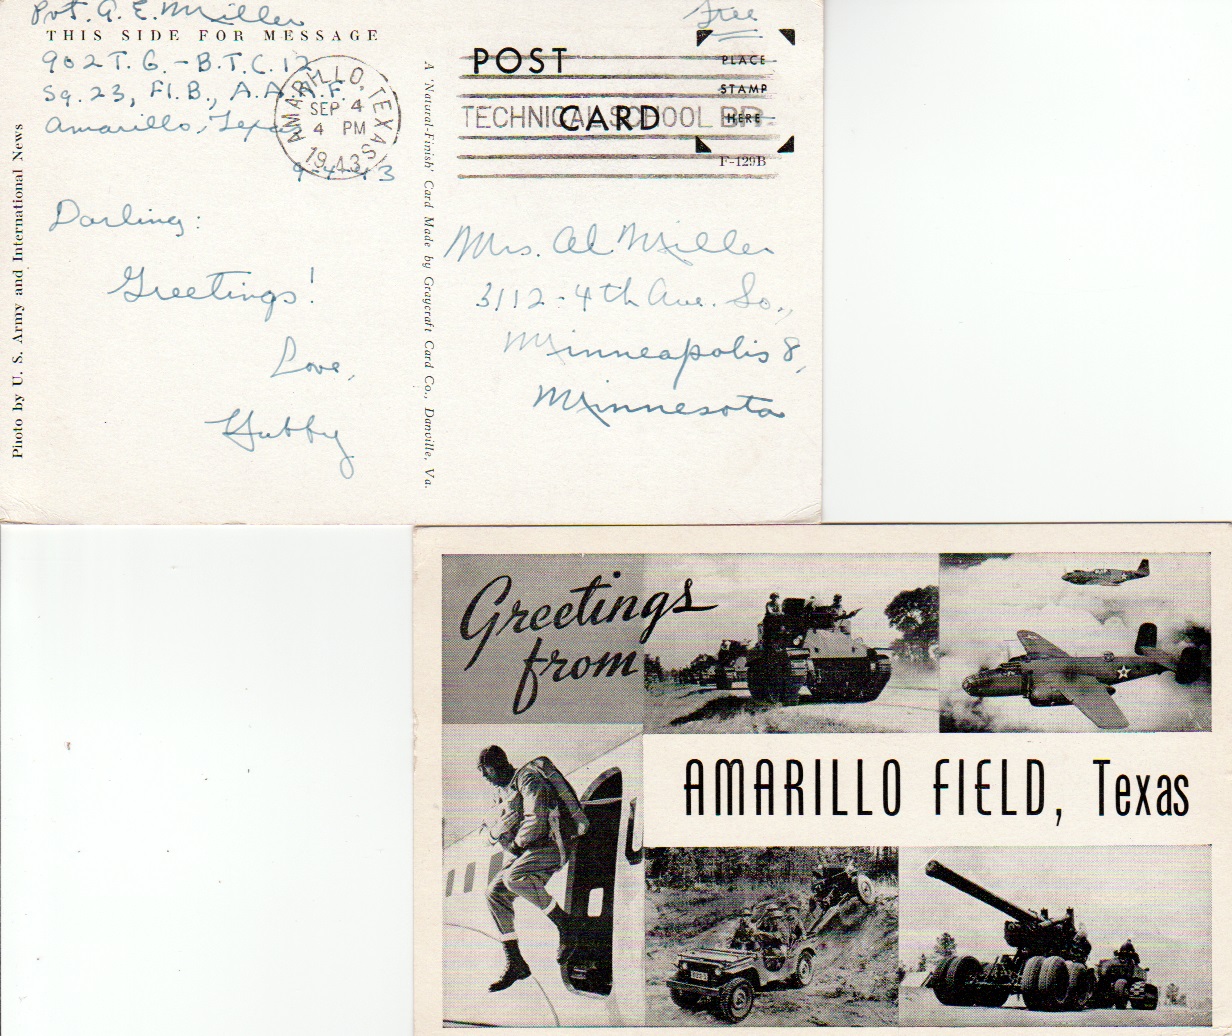 Pvt. A. E. Miller
THIS SIDE FOR MESSAGE
902 T. G. - B.T.C. 12
Sq. 23, Fl. B., A.A.A.F.
Amarillo, Texas
9-4-43
Darling:
Greetings!
Love,
Hubby
Photo by U. S. Army and International News
AMARILLO, TEXAS
SEP 4
4 PM
1943
A 'Natural-Finish' Card Made by Graycraft Card Co., Danville, Va.
Free
POST
CARD
TECHNICAL SCHOOL BR.
PLACE
STAMP
HERE
F-129B
Mrs. Al Miller
3112 - 4th Ave. So.,
Minneapolis 8,
Minnesota
Greetings
from
AMARILLO FIELD, Texas